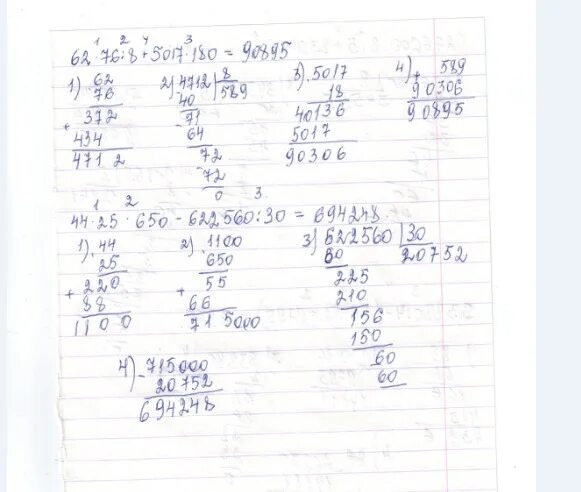 1 2 4 3
62·76:8+5017·180=90895
1) 62
76
372
+
434
4712
2) 4712 8
40 589
71
64
72
72
0
3) 5017
18
40136
5017
90306
4) 589
+
90306
90895
1 2 3
44·25·650-622560:30=694248
1) 44
25
220
+
88
1100
2) 1100
650
55
+
66
715000
3) 622560 30
60 20752
225
210
156
150
60
60
4) 715000
20752
694248